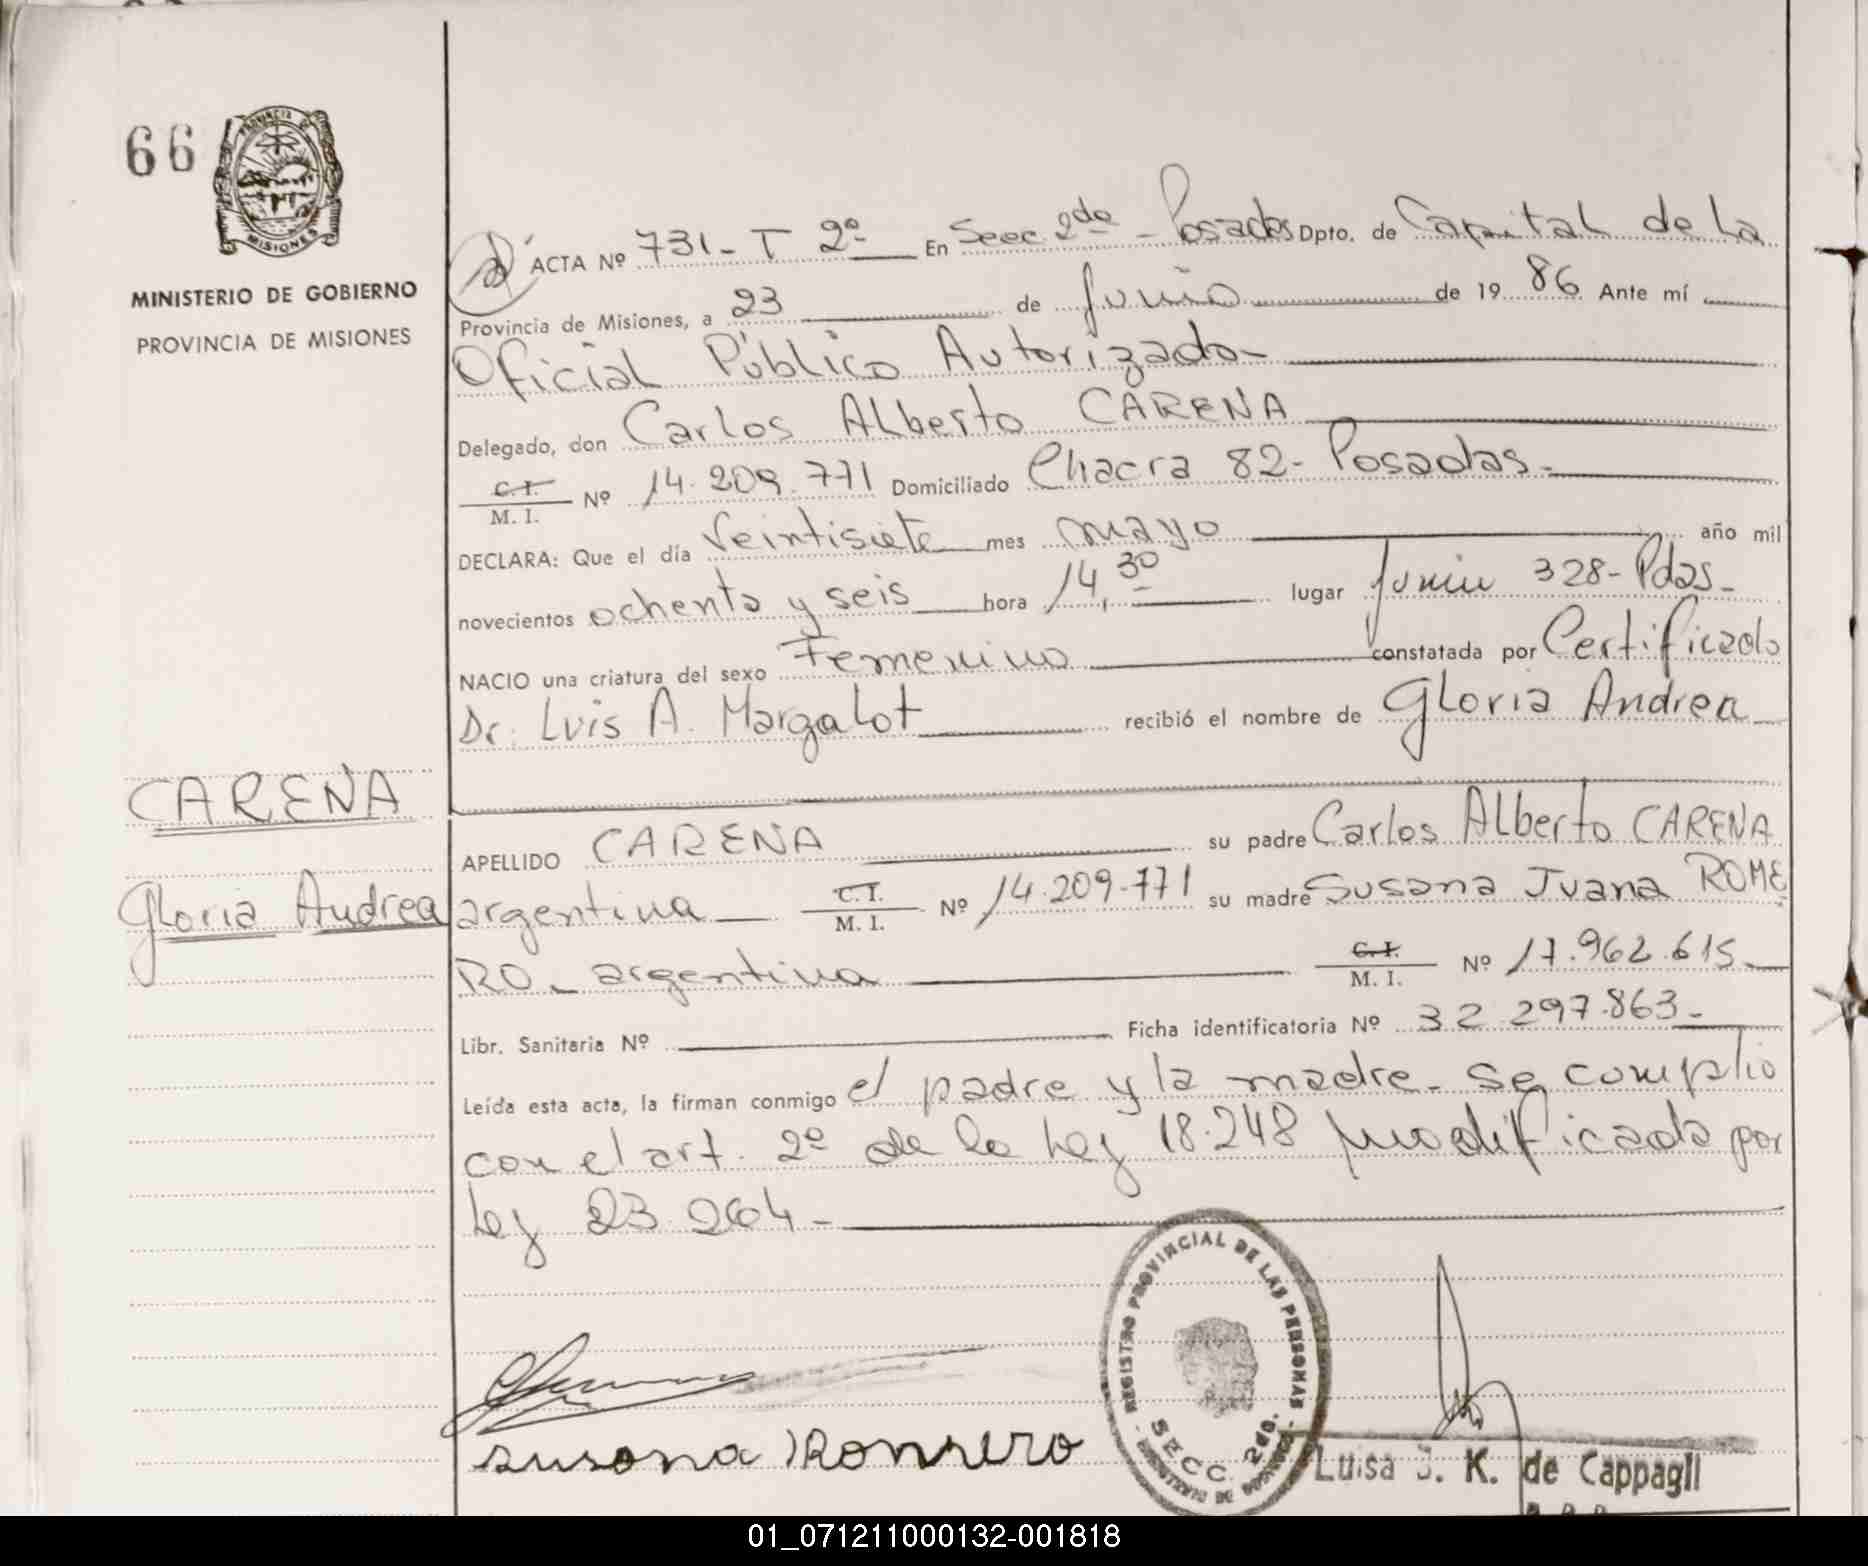 66
PROVINCIA DE
MISIONES
MINISTERIO DE GOBIERNO
PROVINCIA DE MISIONES
ACTA Nº 731- T 2º En Secc 2da - Posadas Dpto. de Capital de La
Provincia de Misiones, a 23 de Junio de 19 86 Ante mí
Oficial Público Autorizado-
Delegado, don Carlos Alberto CARENA
C.I.
M. I. Nº 14.209.771 Domiciliado Chacra 82- Posadas-
DECLARA: Que el día Veintisiete mes mayo año mil
novecientos ochenta y seis hora 14,30 lugar Junin 328- Pdas-
NACIO una criatura del sexo Femenino constatada por Certificado
Dr. Luis A. Margalot recibió el nombre de Gloria Andrea
CARENA
Gloria Andrea
APELLIDO CARENA su padre Carlos Alberto CARENA
argentina C.I.
M. I. Nº 14.209.771 su madre Susana Juana ROME
RO- argentina C.I.
M. I. Nº 17.962.615-
Libr. Sanitaria Nº Ficha identificatoria Nº 32.297.863-
Leída esta acta, la firman conmigo el padre y la madre- Se cumplio
con el art. 2º de la Ley 18.248 modificada por
Ley 23.264-
REGISTRO PROVINCIAL DE LAS PERSONAS
SECC. 2da.
Susana Romero
Luisa S. K. de Cappagli
01_071211000132-001818